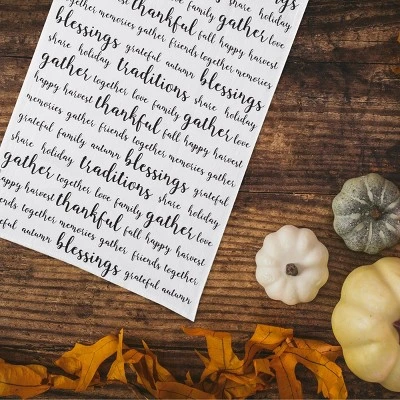 blessings
memories gather thankful gather
blessings friends together fall happy share holiday
share holiday grateful autumn friends together love
gather together traditions blessings memories
happy harvest love family share holiday
memories gather thankful fall gather love
grateful family friends together happy harvest
share holiday autumn blessings memories gather
gather traditions grateful
happy harvest together love family share holiday
friends together thankful gather love
grateful autumn memories gather fall happy harvest
blessings friends together
grateful autumn